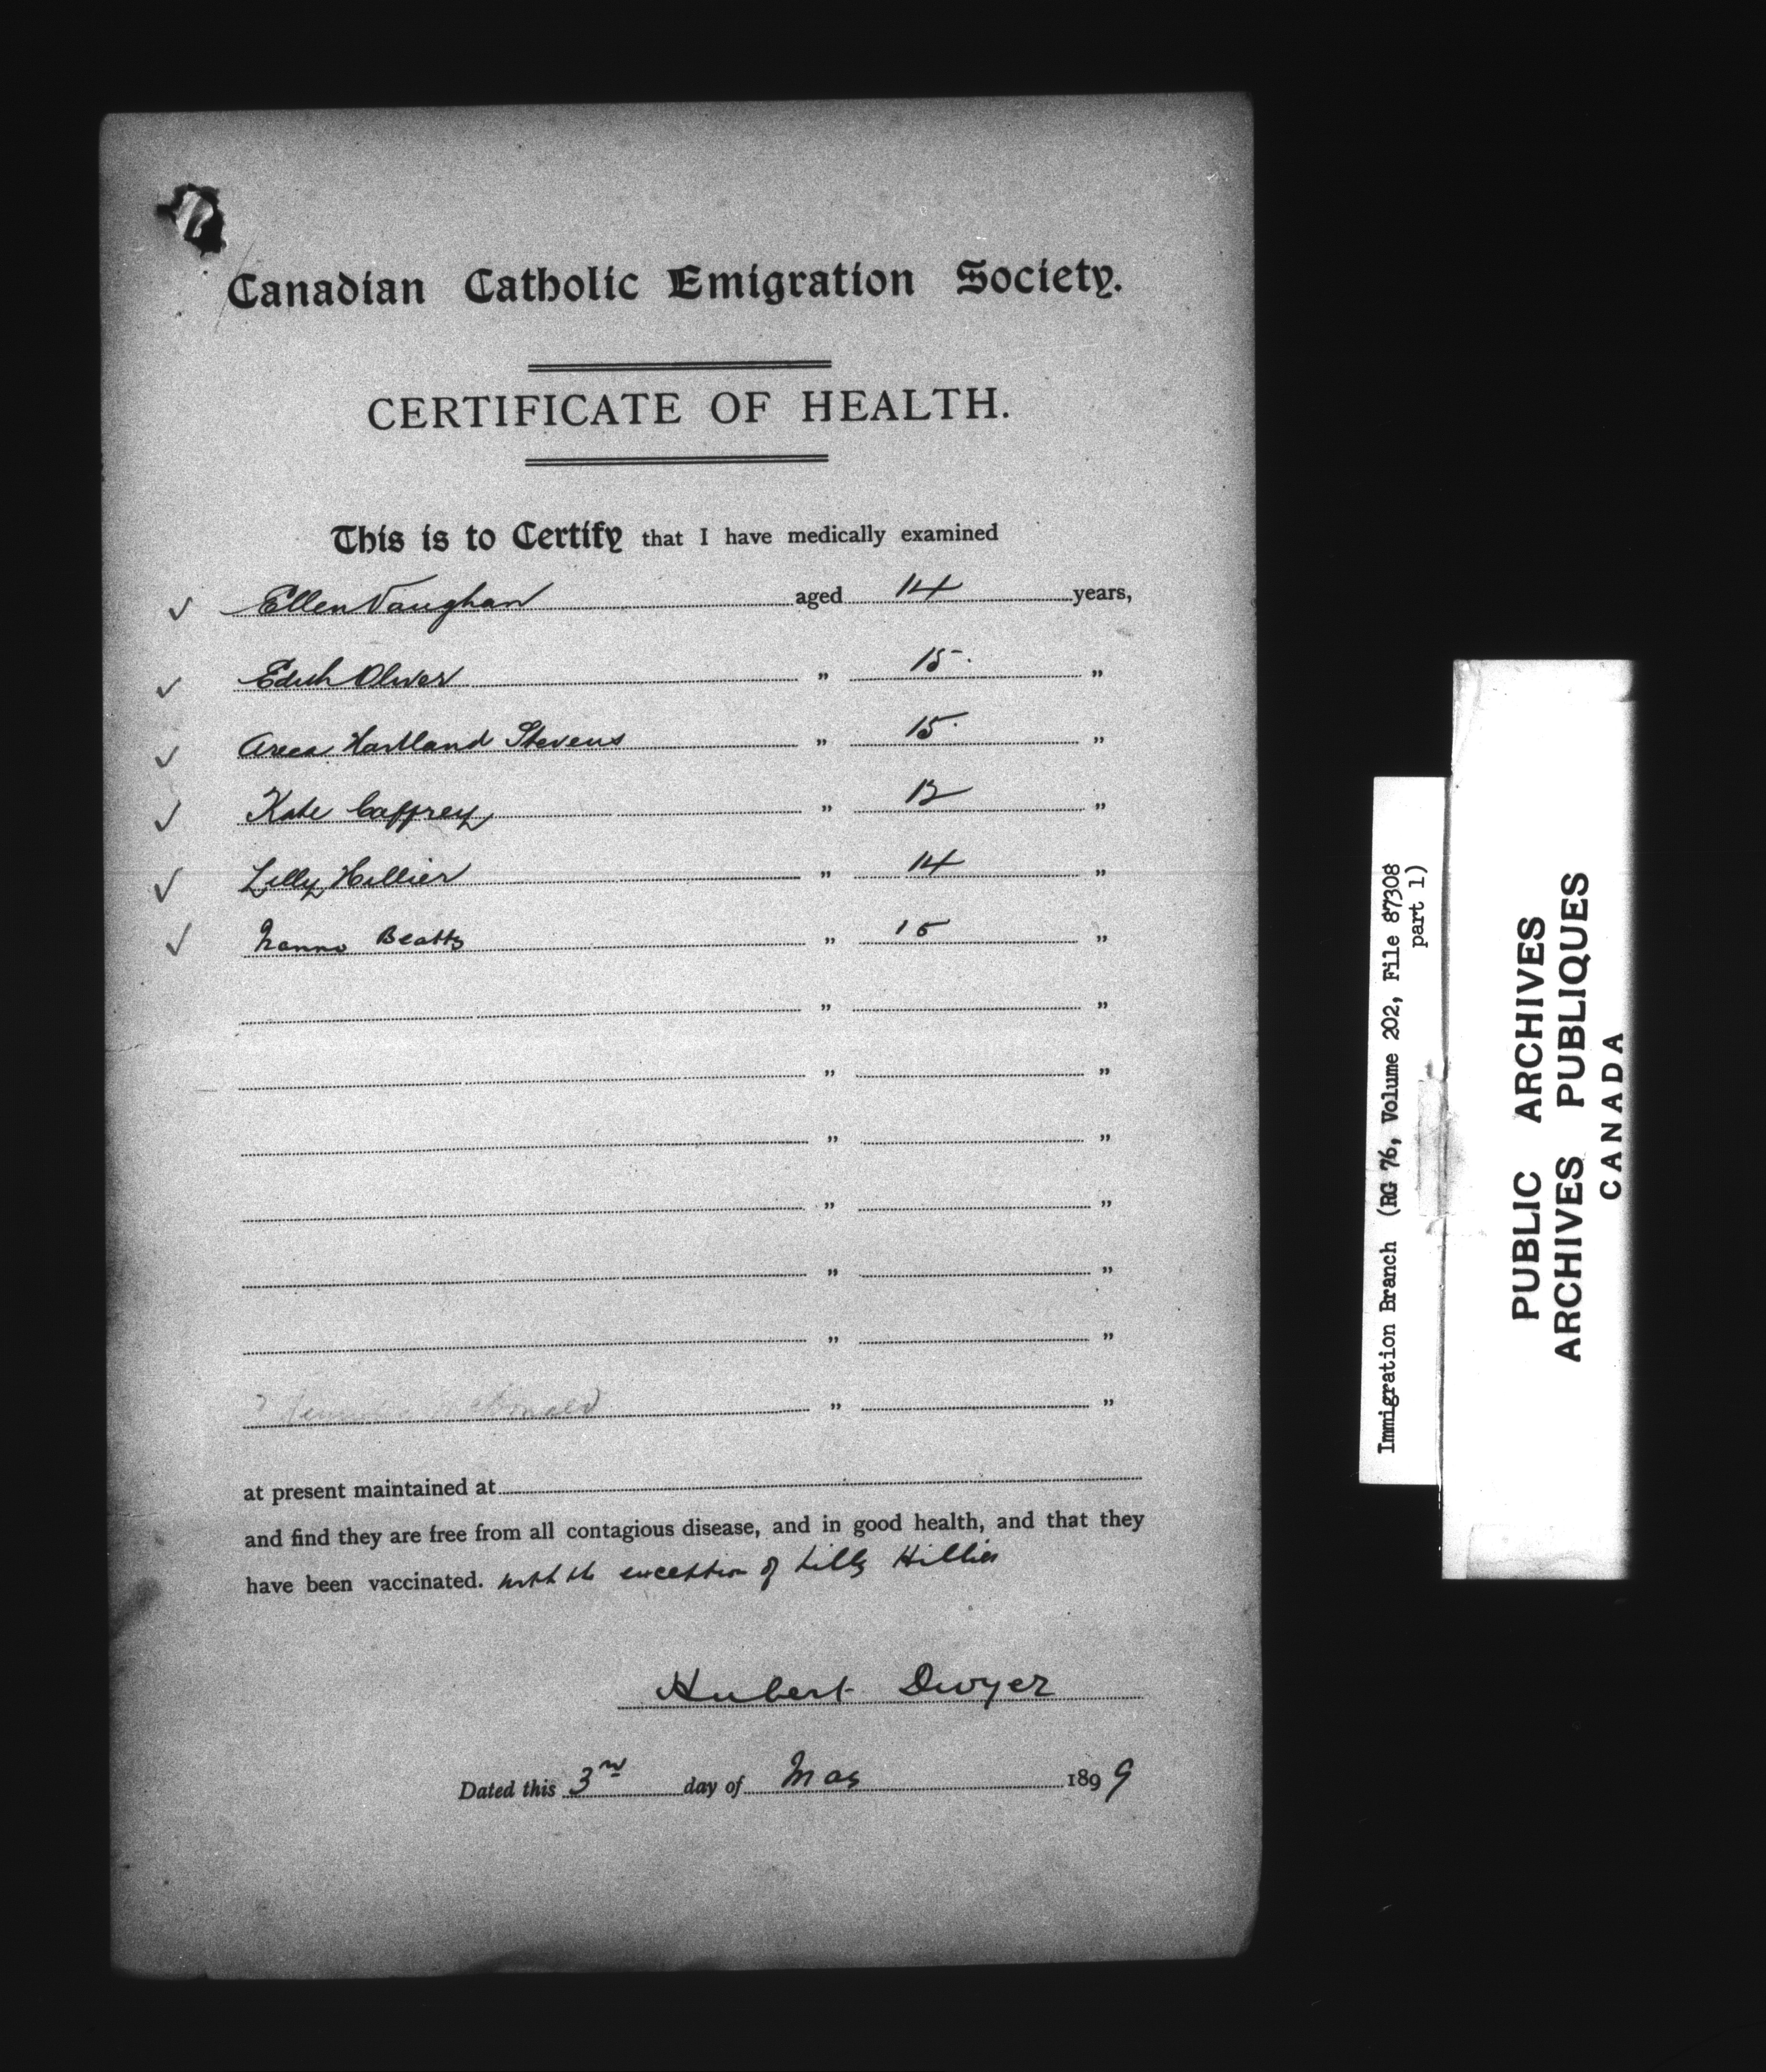 Canadian Catholic Emigration Society.
CERTIFICATE OF HEALTH.
This is to Certify that I have medically examined
✓ Ellen Vaughan aged 14 years,
✓ Edith Oliver " 15 "
✓ Hartland Stevens " 15 "
✓ Kate Caffrey " "
✓ Lilly Hillier " 14 "
✓ " 15 "
" "
" "
" "
" "
" "
" "
McDonald " "
at present maintained at
and find they are free from all contagious disease, and in good health, and that they
have been vaccinated. with the exception of Lilly Hillier
Hubert Dwyer
Dated this 3rd day of May 1899
Immigration Branch (RG 76, Volume 202, File 87308
part 1)
PUBLIC ARCHIVES
ARCHIVES PUBLIQUES
CANADA